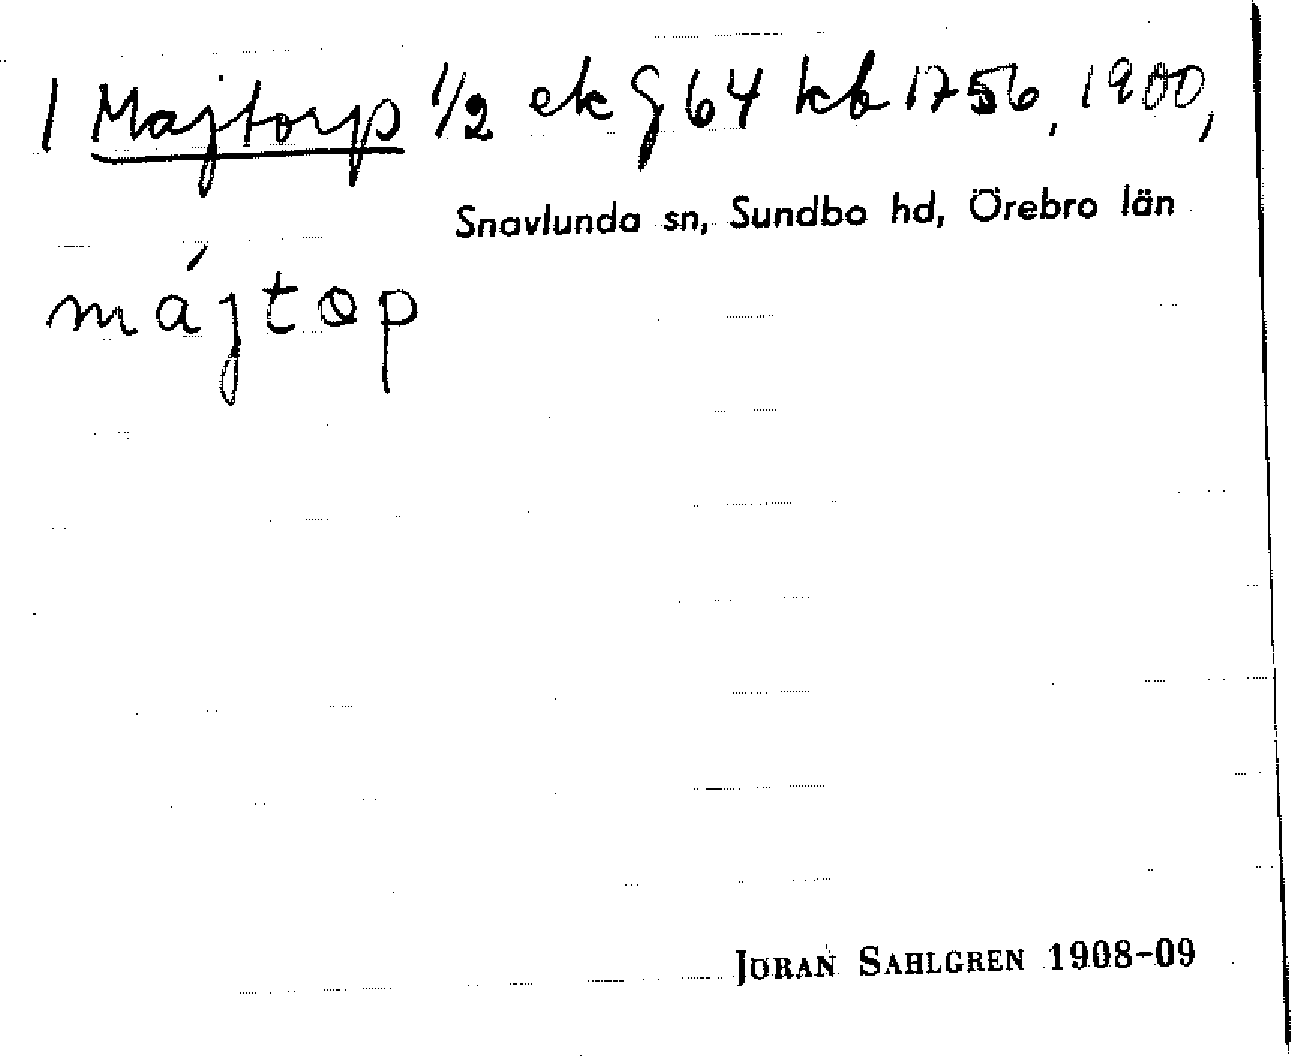 1 Majtorp 1/2 ek G 64 kb 1756, 1900,
Snavlunda sn, Sundbo hd, Örebro län
májtop
JÖRAN SAHLGREN 1908-09